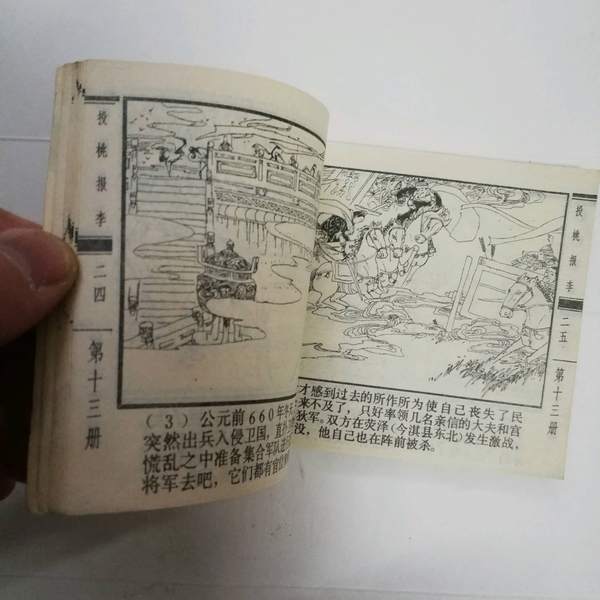 投桃报李
二四
第十三册
（3）公元前660年冬天
突然出兵入侵卫国，直
慌乱之中准备集合军队
将军去吧，它们都有官
才感到过去的所作所为使自己丧失了民
来不及了，只好率领几名亲信的大夫和宫
狄军。双方在荧泽（今淇县东北）发生激战，
没，他自己也在阵前被杀。
投桃报李
二五
第十三册